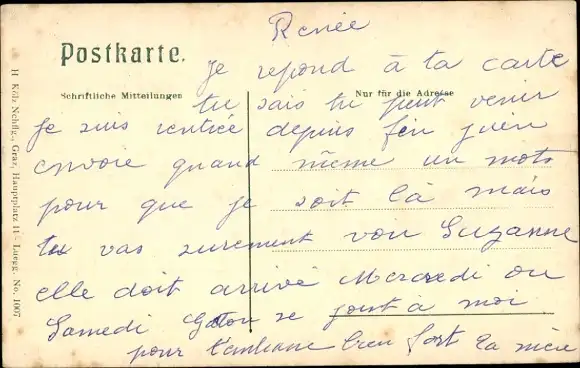 Renée
Postkarte.
je repond à ta carte
Schriftliche Mitteilungen
Nur für die Adresse
tu sais tu peut venir
je suis rentrée depuis fin juin
envoie quand même un mots
pour que je soit là mais
tu vas surement voir Suzanne
elle doit arrivé Mercredi ou
Samedi Gaston se joint à moi
pour t'embrasse bien fort ta
H. Kölz Nchflg., Graz, Hauptplatz 11 - Luegg. No. 1007